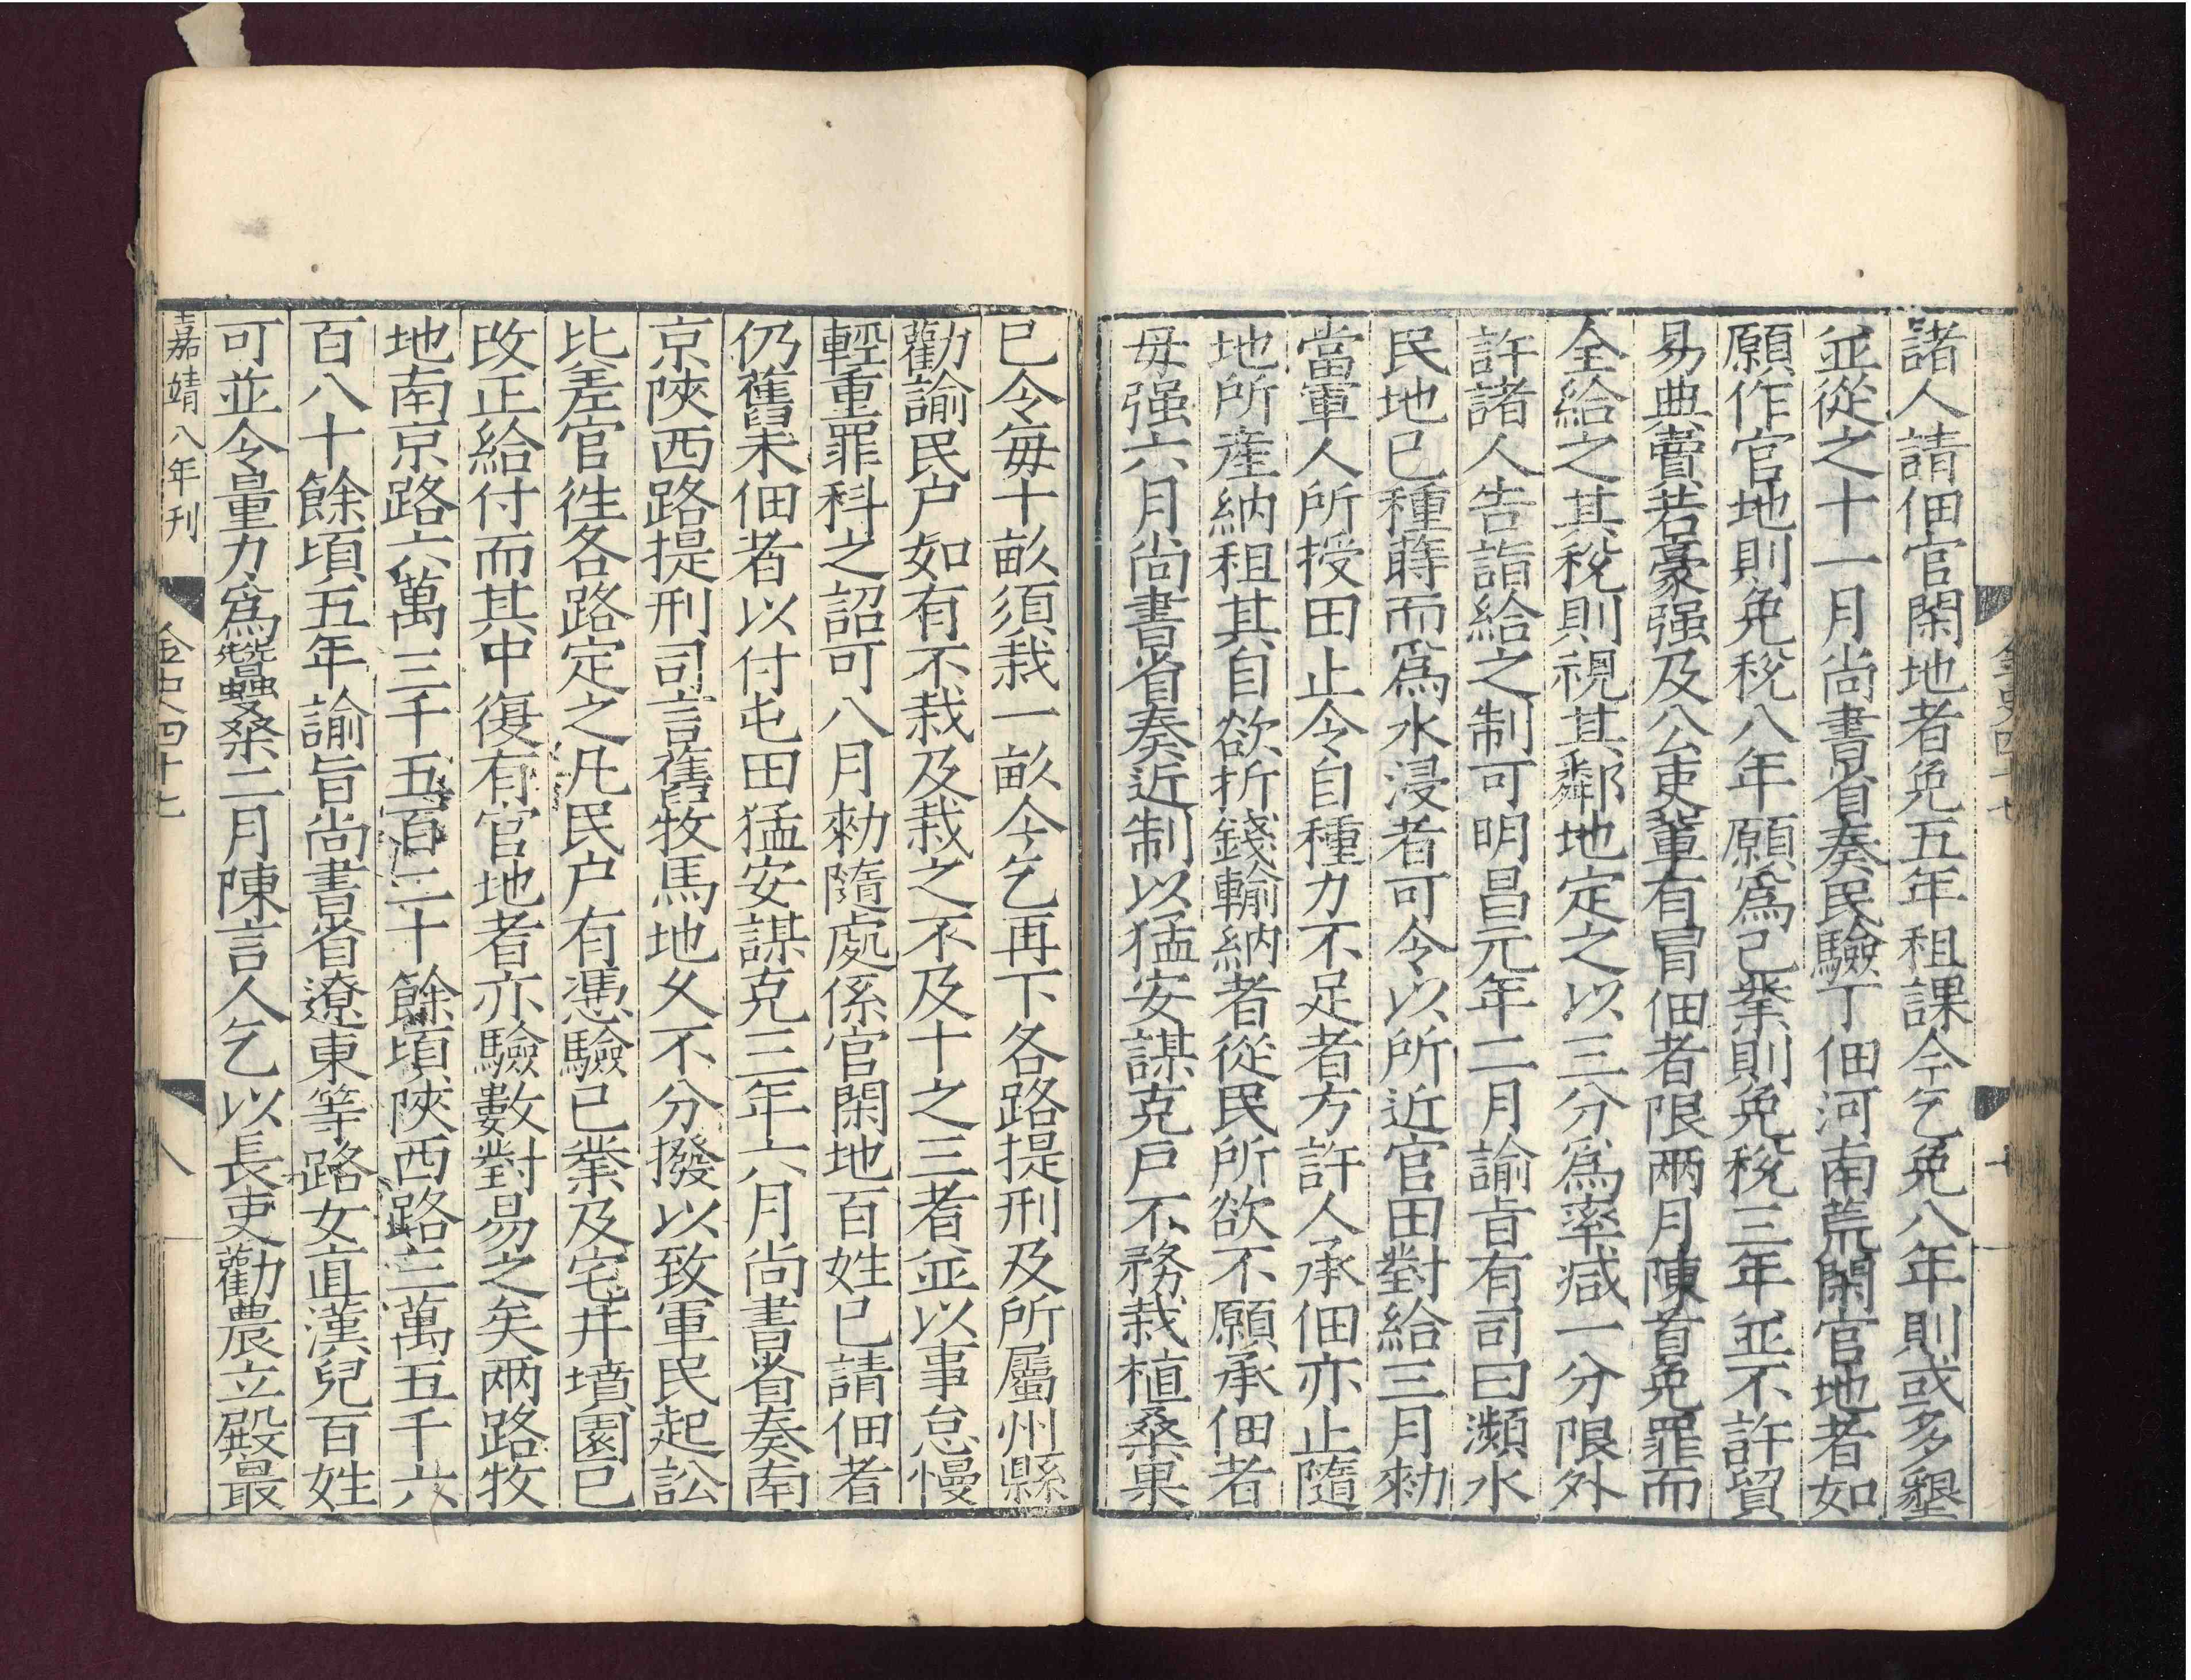 諸人請佃官閑地者免五年租課今乞免八年則或多墾
並從之十一月尚書省奏民驗丁佃河南荒閑官地者如
願作官地則免稅八年願爲己業則免稅三年並不許貿
易典賣若豪强及公吏輩有冒佃者限两月陳首免罪而
全給之其稅則視其鄰地定之以三分爲率减一分限外
許諸人告詣給之制可明昌元年二月諭旨有司曰瀕水
民地已種蒔而爲水浸者可令以所近官田對給三月勑
當軍人所授田止令自種力不足者方許人承佃亦止隨
地所產納租其自欲折錢輸納者從民所欲不願承佃者
毋强六月尚書省奏近制以猛安謀克戶不務栽植桑果
已令每十畝須栽一畝今乞再下各路提刑及所屬州縣
勸諭民户如有不栽及栽之不及十之三者並以事怠慢
輕重罪科之詔可八月勑隨處係官閑地百姓已請佃者
仍舊未佃者以付屯田猛安謀克三年六月尚書省奏南
京陝西路提刑司言舊牧馬地久不分撥以致軍民起訟
比差官徃各路定之凡民户有憑驗己業及宅井墳園已
改正給付而其中復有官地者亦驗數對易之矣两路牧
地南京路六萬三千五百二十餘頃陝西路三萬五千六
百八十餘頃五年諭旨尚書省遼東等路女直漢兒百姓
可並令量力爲蠶桑二月陳言人乞以長吏勸農立殿最
嘉靖八年刊
金史四十七
八
金史四十七
七